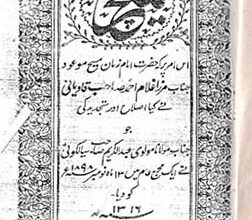 لیکچر
اس امر پر کہ حضرت امام زمان مسیح موعود
جناب مرزا غلام احمد صاحب قادیانی
نے کیا اصلاح اور تجدید کی
جو
جناب مولانا مولوی عبدالکریم صاحب سیالکوٹی
نے ایک مجمع عام میں ۱۳ ماہ نومبر ۱۸۹۸ء
کو دیا۔
۱۳۱۶